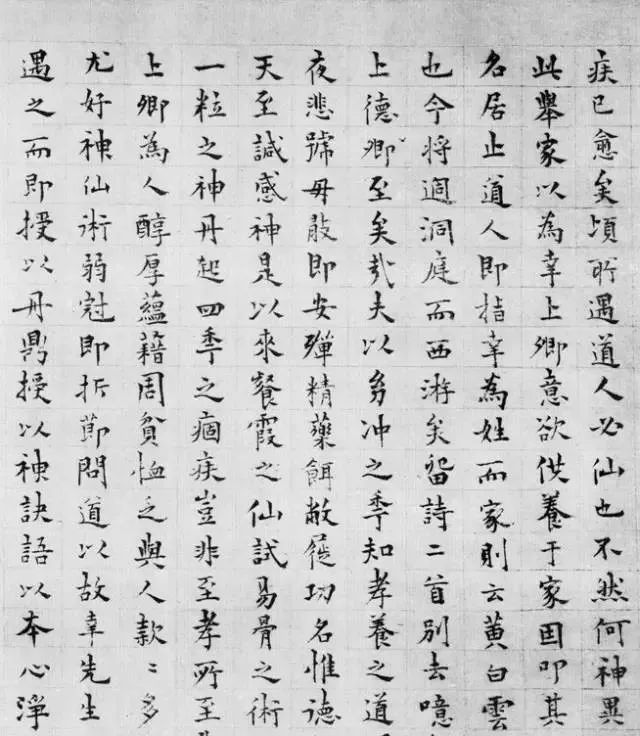 疾已愈矣頃所遇道人必仙也不然何神異
此舉家以為幸上卿意欲供養于家因叩其
名居止道人即指幸為姓而家則云黃白雲
也今將過洞庭而西游矣留詩二首別去噫
上德卿至矣哉夫以幼冲之秊知孝養之道
夜悲號毋敢即安殫精藥餌敝屣功名惟德
天至諴感神是以來餐霞之仙試易骨之術
一粒之神丹起四秊之痼疾豈非至孝所至
上卿為人醇厚蘊藉周貧恤乏與人款〻多
尤好神仙術弱冠即折節問道以故幸先生
遇之而即授以丹鼎授以神訣語以本心淨